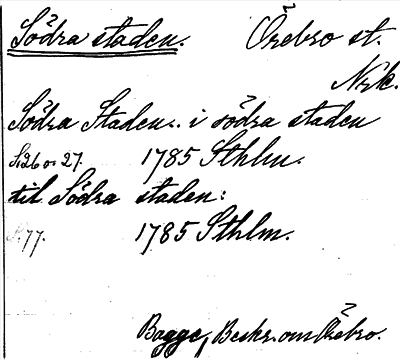 Södra staden. Örebro st.
Nrk.
Södra Staden.. i södra staden
S. 26 o. 27. 1785 Sthlm.
til Södra staden:
S. 77. 1785 Sthlm.
Bagge, Beskr. om Örebro.